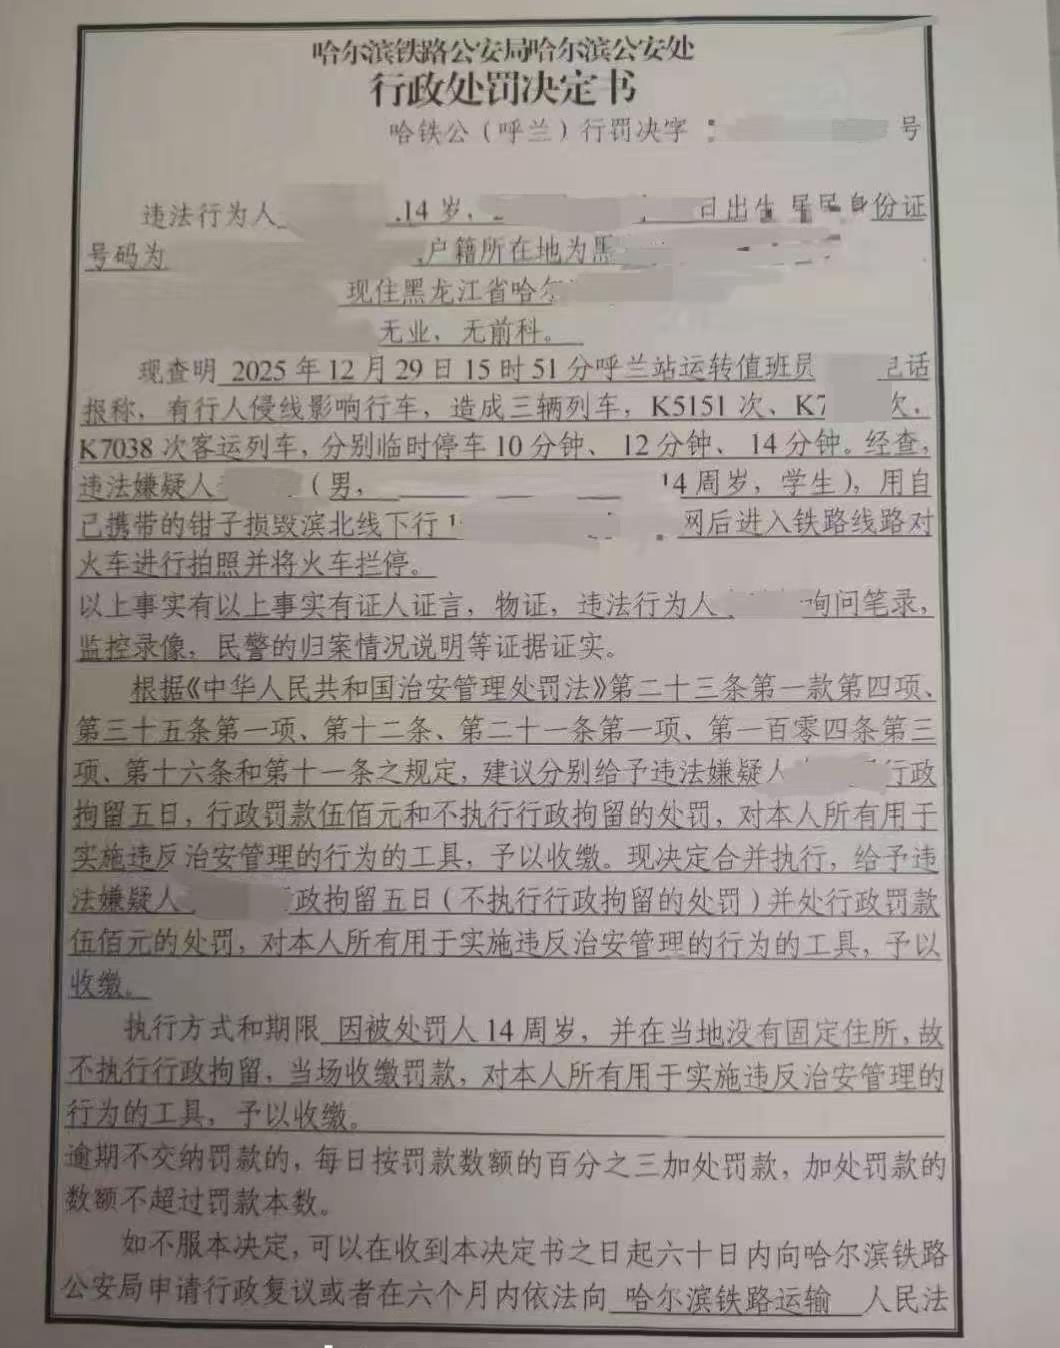 哈尔滨铁路公安局哈尔滨公安处
行政处罚决定书
哈铁公（呼兰）行罚决字： 号
违法行为人 14岁, 日出生 居民身份证
号码为 ,户籍所在地为黑
现住黑龙江省哈尔
无业，无前科。
现查明 2025年12月29日15时51分呼兰站运转值班员 电话
报称，有行人侵线影响行车，造成三辆列车，K5151次、K7 次、
K7038次客运列车，分别临时停车10分钟、12分钟、14分钟。经查，
违法嫌疑人 （男， 14周岁，学生），用自
己携带的钳子损毁滨北线下行1 网后进入铁路线路对
火车进行拍照并将火车拦停。
以上事实有以上事实有证人证言，物证，违法行为人 询问笔录，
监控录像，民警的归案情况说明等证据证实。
根据《中华人民共和国治安管理处罚法》第二十三条第一款第四项、
第三十五条第一项、第十二条、第二十一条第一项、第一百零四条第三
项、第十六条和第十一条之规定，建议分别给予违法嫌疑人 行政
拘留五日，行政罚款伍佰元和不执行行政拘留的处罚，对本人所有用于
实施违反治安管理的行为的工具，予以收缴。现决定合并执行，给予违
法嫌疑人 政拘留五日（不执行行政拘留的处罚）并处行政罚款
伍佰元的处罚，对本人所有用于实施违反治安管理的行为的工具，予以
收缴。
执行方式和期限 因被处罚人14周岁，并在当地没有固定住所，故
不执行行政拘留，当场收缴罚款，对本人所有用于实施违反治安管理的
行为的工具，予以收缴。
逾期不交纳罚款的，每日按罚款数额的百分之三加处罚款，加处罚款的
数额不超过罚款本数。
如不服本决定，可以在收到本决定书之日起六十日内向哈尔滨铁路
公安局申请行政复议或者在六个月内依法向 哈尔滨铁路运输 人民法